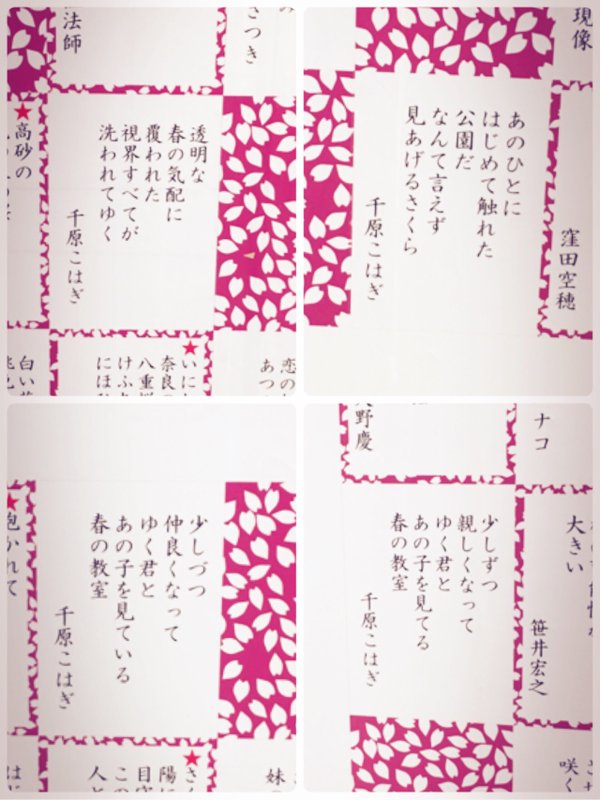 さつき
法師
透明な
春の気配に
覆われた
視界すべてが
洗われてゆく
千原こはぎ
★高砂の
恋の
あつ
★いに
奈良の
八重
けふ
にほ
白い
現像
あのひとに
はじめて触れた
公園だ
なんて言えず
見あげるさくら
千原こはぎ
窪田空穂
少しづつ
仲良くなって
ゆく君と
あの子を見ている
春の教室
千原こはぎ
★抱かれて
妹
★さ
陽に
目
この
人と
はじ
ナコ
野慶
大きい
笹井宏之
少しずつ
親しくなって
ゆく君と
あの子を見てる
春の教室
千原こはぎ
咲く